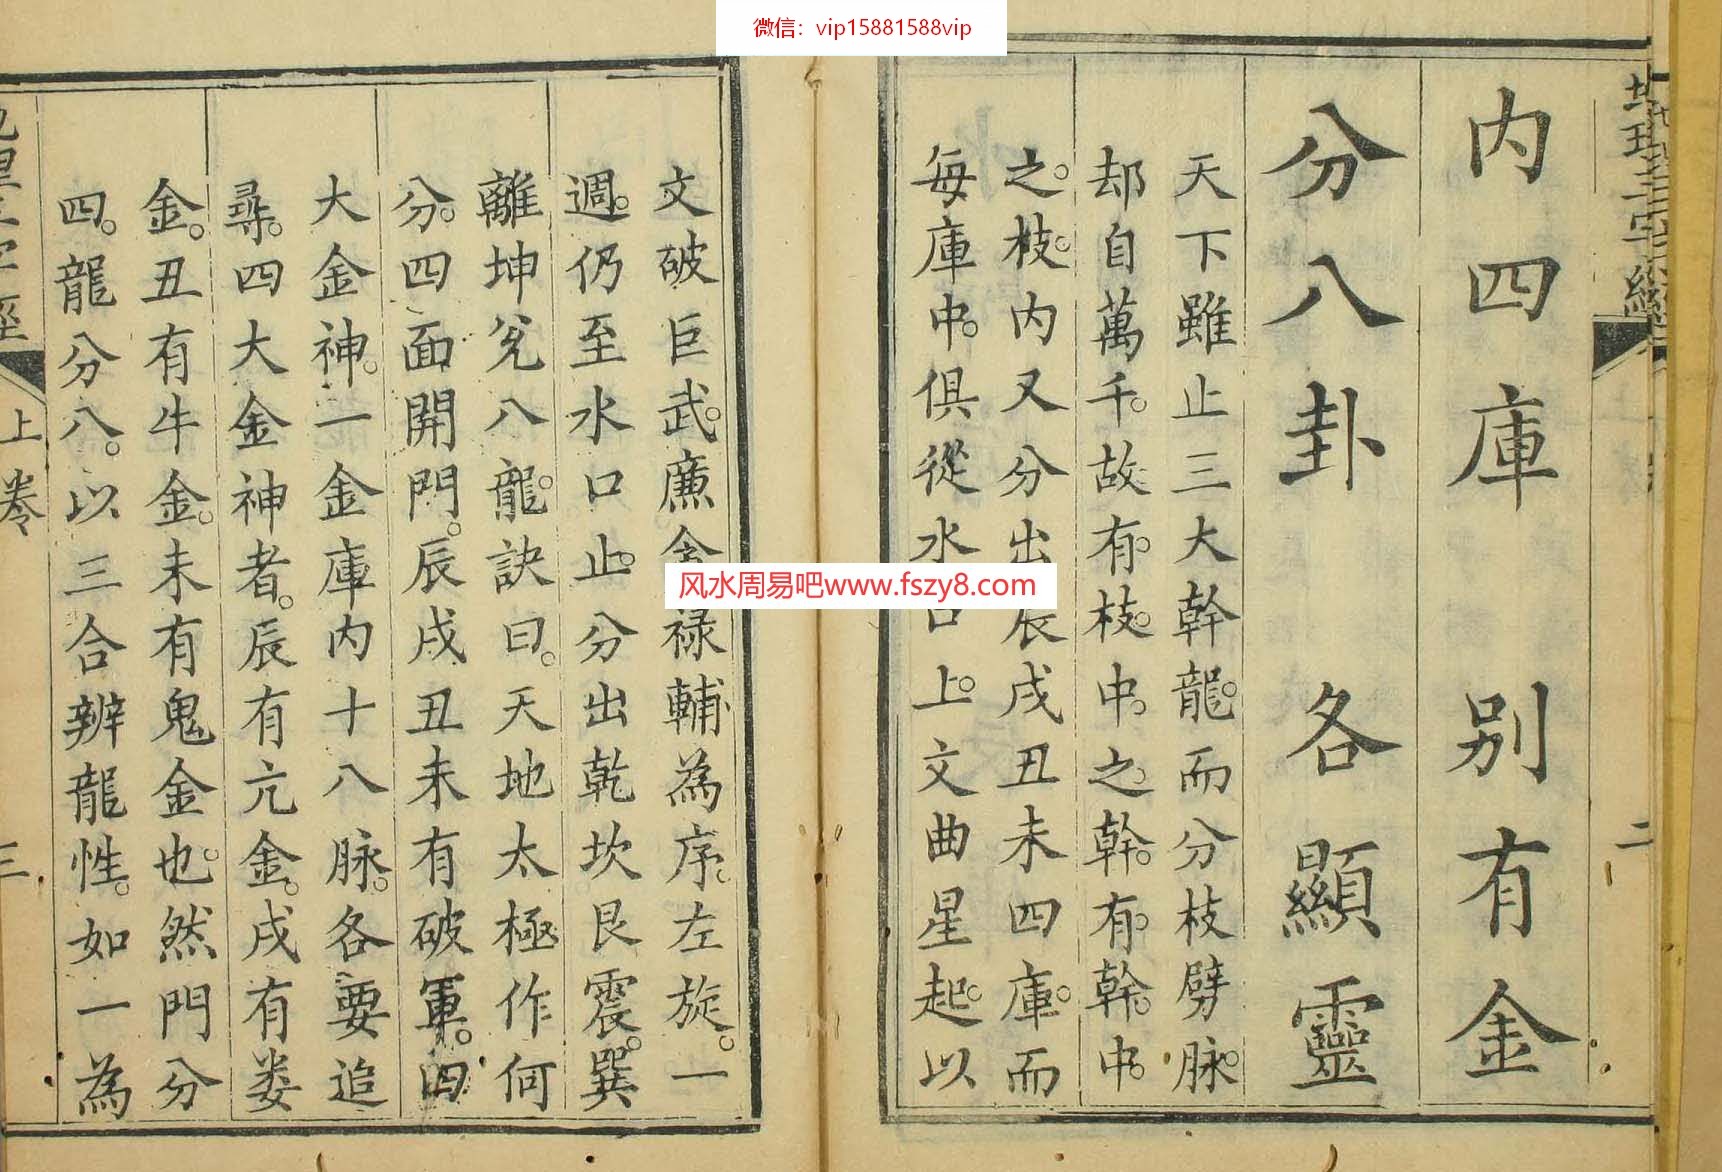 微信：vip15881588vip
地理三字經
二
内四庫　别有金
分八卦　各顯靈
天下雖止三大幹龍。而分枝劈脉。
却自萬千。故有枝。中。之幹。有幹。中。
之。枝。内又分出辰戌丑未四庫。而
每庫中。俱從水口上。文曲星起。以
文破巨武。廉貪禄輔為序。左旋。一
週。仍至水口止。分出乾坎艮震。巽
離坤兊八龍。訣曰。天地太極作何
分。四面開門。辰戌丑未有破軍。四
大金神。一金庫内十八脉。各要追
尋。四大金神者。辰有亢金。戌有娄
金。丑有牛金。未有鬼金也。然門分
四。龍分八。以三合辨龍性。如一為
上卷
三
风水周易吧www.fszy8.com